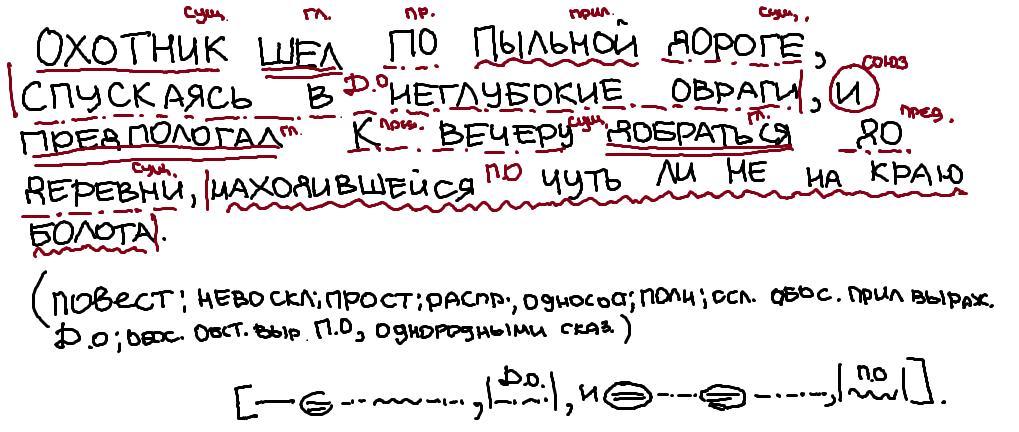 сущ. гл. пр. прил. сущ.
ОХОТНИК ШЕЛ ПО ПЫЛЬНОЙ ДОРОГЕ,
СПУСКАЯСЬ В Д.О НЕГЛУБОКИЕ ОВРАГИ, И СОЮЗ
ПРЕДПОЛОГАЛ гл. К пред. ВЕЧЕРУ сущ. ДОБРАТЬСЯ гл. ДО пред.
ДЕРЕВНИ, сущ. НАХОДИВШЕЙСЯ П.О ЧУТЬ ЛИ НЕ НА КРАЮ
БОЛОТА.
(ПОВЕСТ; НЕВОСКЛ; ПРОСТ; РАСПР., ОДНОСОС; ПОЛН; ОСЛ. ОБОС. ПРИЛ ВЫРАЖ.
Д.О; ОБОС. ОБСТ. ВЫР. П.О, ОДНОРОДНЫМИ СКАЗ.)
[ , |Д.О.|, И , |П.О|].